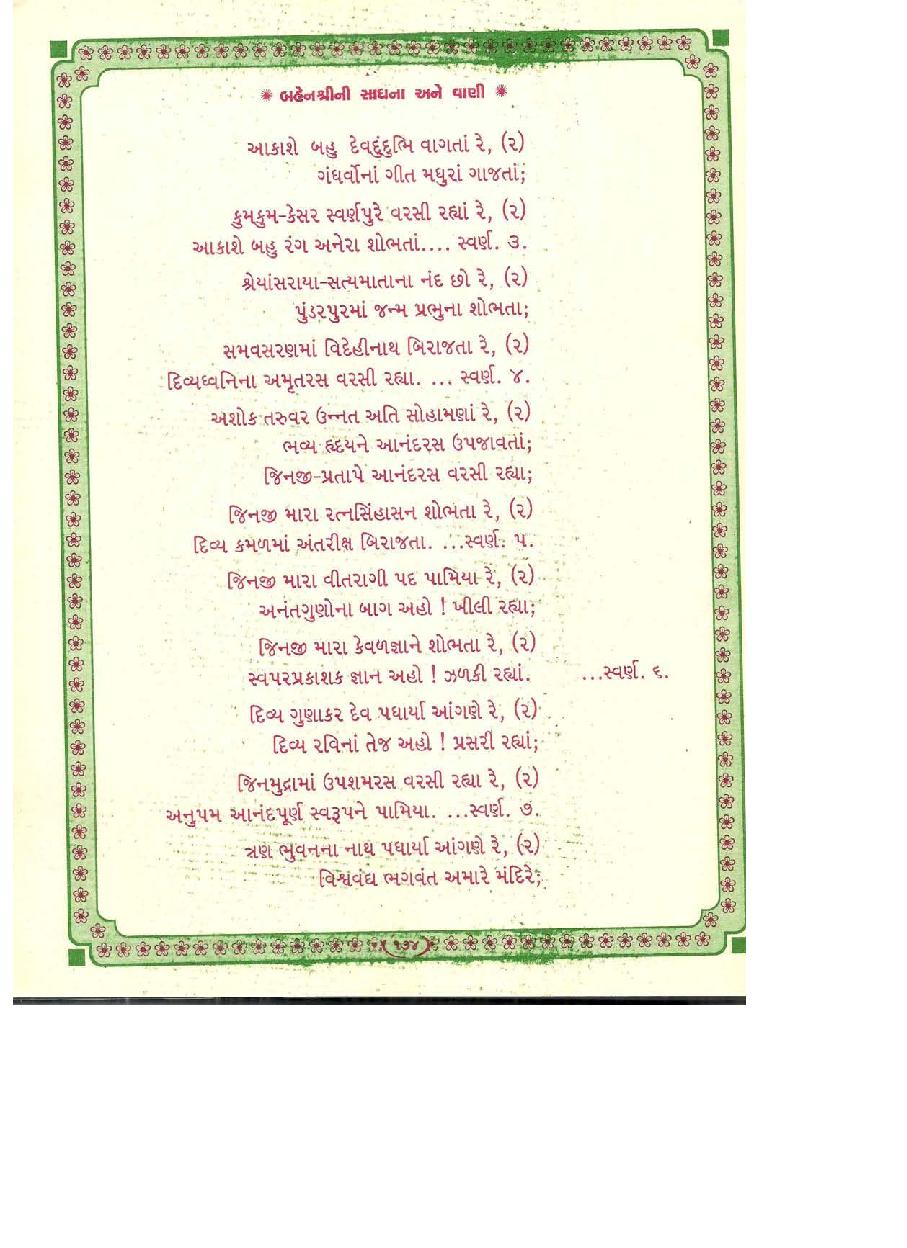 ✺ બહેનશ્રીની સાધના અને વાણી ✺
આકાશે બહુ દેવદુંદુભિ વાગતાં રે, (૨)
ગંધર્વોનાં ગીત મધુરાં ગાજતાં;
કુમકુમ-કેસર સ્વર્ણપુરે વરસી રહ્યાં રે, (૨)
આકાશે બહુ રંગ અનેરા શોભતાં.... સ્વર્ણ. ૩.
શ્રેયાંસરાયા-સત્યમાતાના નંદ છો રે, (૨)
પુંડરપુરમાં જન્મ પ્રભુના શોભતા;
સમવસરણમાં વિદેહીનાથ બિરાજતા રે, (૨)
દિવ્યધ્વનિના અમૃતરસ વરસી રહ્યા. ... સ્વર્ણ. ૪.
અશોક તરુવર ઉન્નત અતિ સોહામણાં રે, (૨)
ભવ્ય હૃદયને આનંદરસ ઉપજાવતાં;
જિનજી-પ્રતાપે આનંદરસ વરસી રહ્યા;
જિનજી મારા રત્નસિંહાસન શોભતા રે, (૨)
દિવ્ય કમળમાં અંતરીક્ષ બિરાજતા. ...સ્વર્ણ. ૫.
જિનજી મારા વીતરાગી પદ પામિયા રે, (૨)
અનંતગુણોના બાગ અહો ! ખીલી રહ્યા;
જિનજી મારા કેવળજ્ઞાને શોભતા રે, (૨)
સ્વપરપ્રકાશક જ્ઞાન અહો ! ઝળકી રહ્યાં. ...સ્વર્ણ. ૬.
દિવ્ય ગુણાકર દેવ પધાર્યા આંગણે રે, (૨)
દિવ્ય રવિનાં તેજ અહો ! પ્રસરી રહ્યાં;
જિનમુદ્રામાં ઉપશમરસ વરસી રહ્યા રે, (૨)
અનુપમ આનંદપૂર્ણ સ્વરૂપને પામિયા. ...સ્વર્ણ. ૭.
ત્રણ ભુવનના નાથ પધાર્યા આંગણે રે, (૨)
વિશ્વવંદ્ય ભગવંત અમારે મંદિરે;
૧૭૪